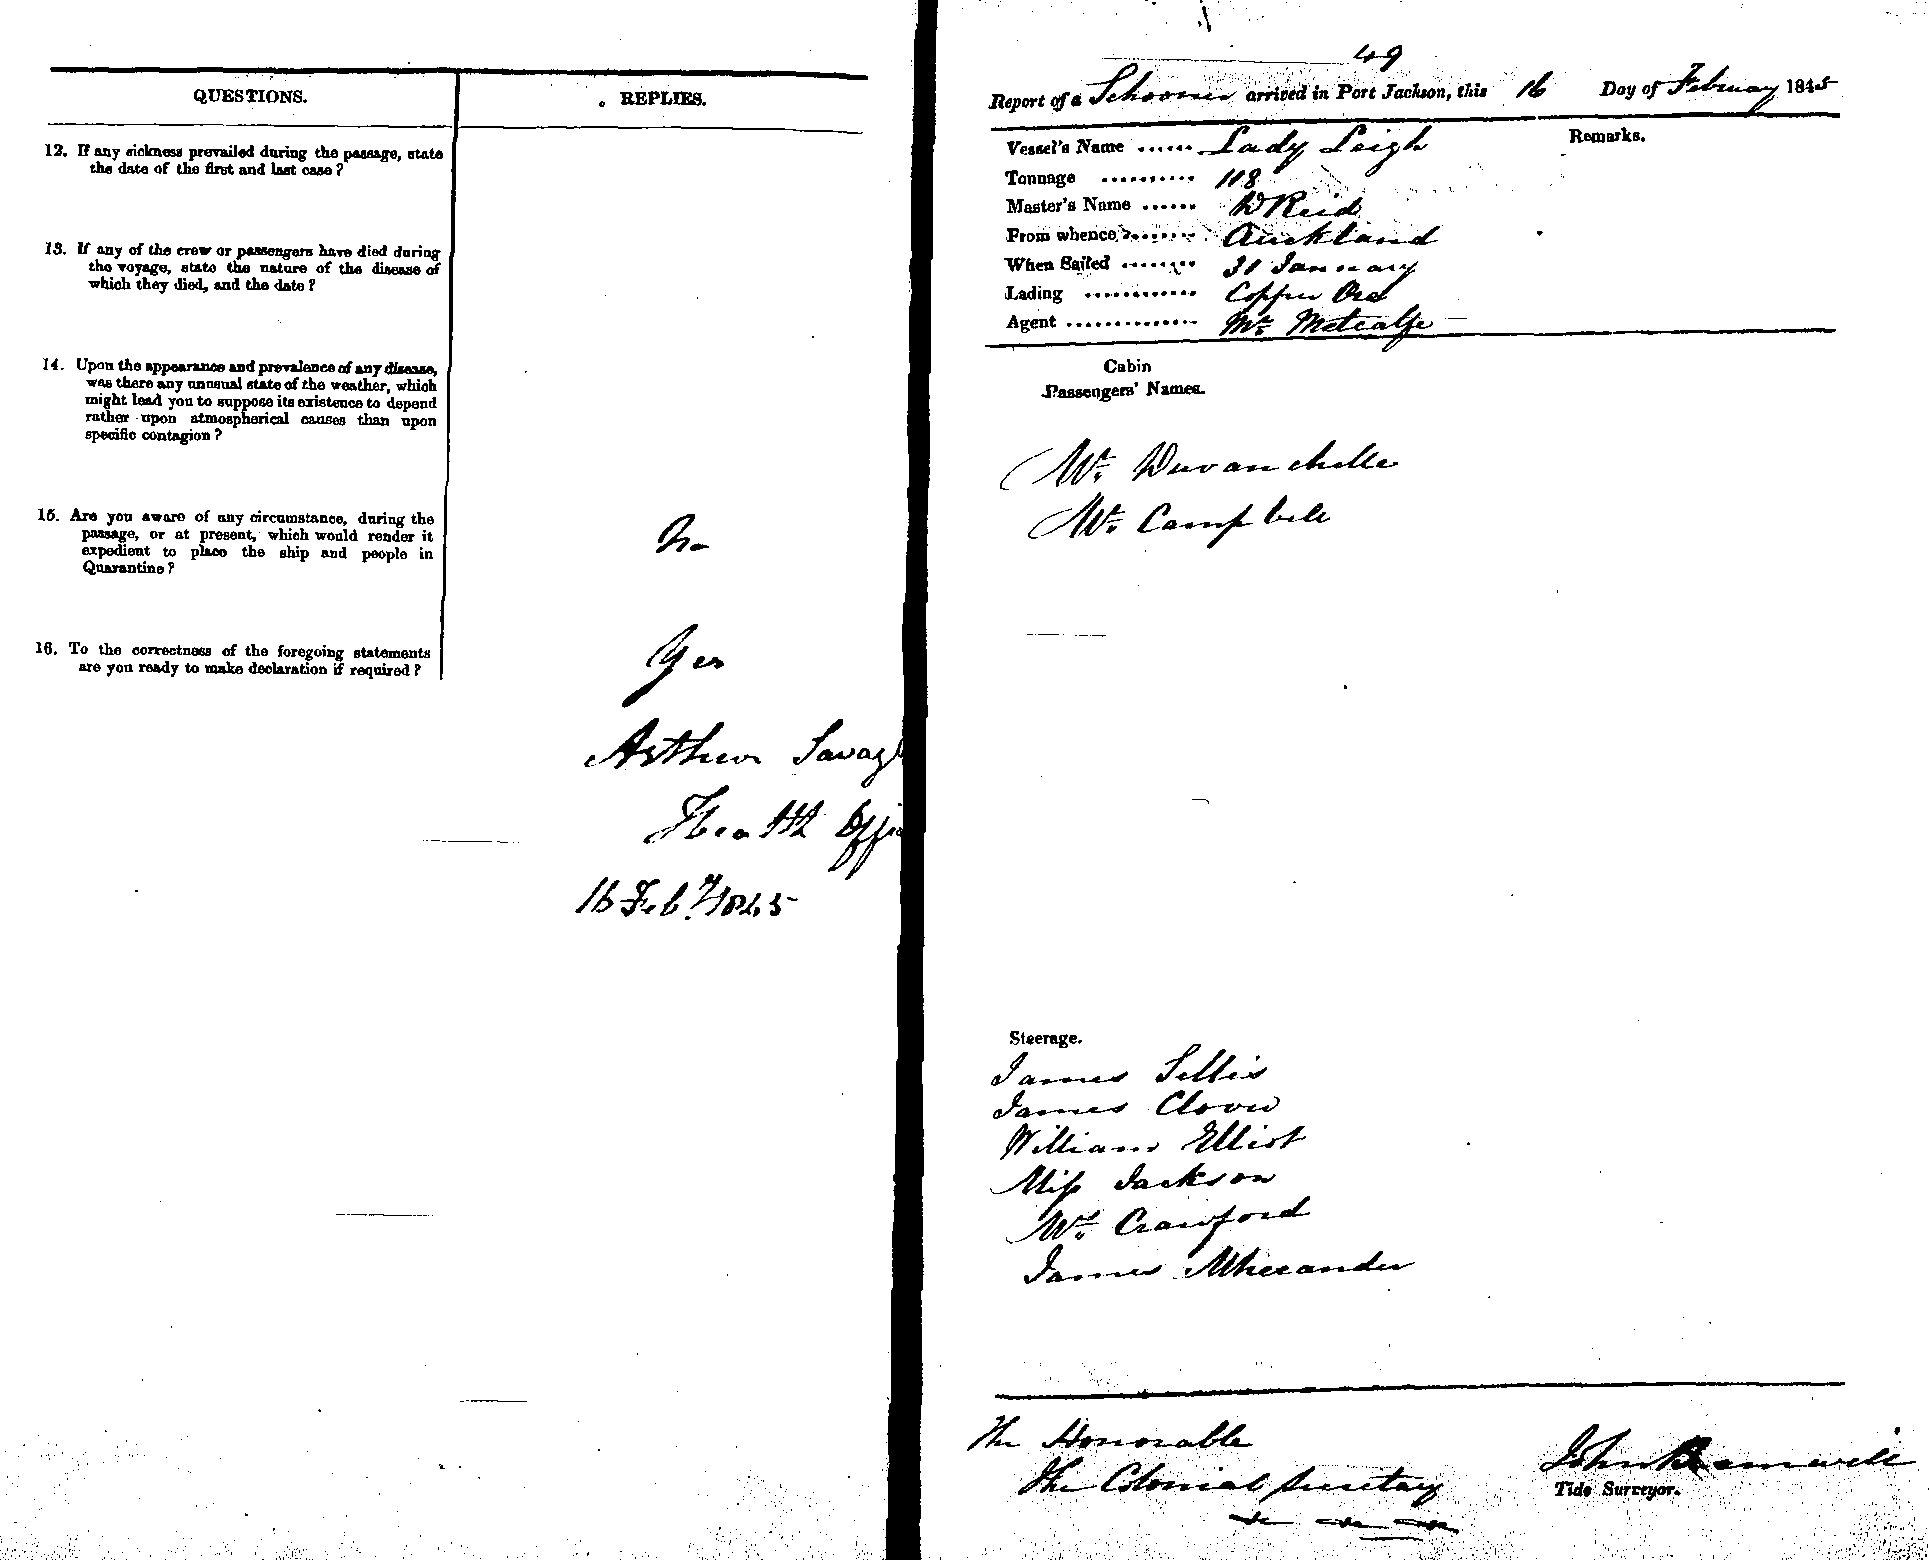 QUESTIONS.
REPLIES.
12. If any sickness prevailed during the passage, state
the date of the first and last case?
13. If any of the crew or passengers have died during
the voyage, state the nature of the disease of
which they died, and the date?
14. Upon the appearance and prevalence of any disease,
was there any unusual state of the weather, which
might lead you to suppose its existence to depend
rather upon atmospherical causes than upon
specific contagion?
15. Are you aware of any circumstance, during the
passage, or at present, which would render it
expedient to place the ship and people in
Quarantine?
No
16. To the correctness of the foregoing statements
are you ready to make declaration if required?
Yes
Arthur Savag
Health Offi
16 Feby. 1845
49
Report of a Schooner arrived in Port Jackson, this 16 Day of February 1845
Vessel's Name ...... Lady Leigh
Remarks.
Tonnage .......... 118
Master's Name ...... D Reid
From whence ........ Auckland
When Sailed ........ 31 January
Lading ............ Copper Ore
Agent .............. Mr. Metcalfe
Cabin
Passengers' Names.
Mr. Duvanchelle
Mr. Campbell
Steerage.
James
James Clover
William Elliot
Miss Jackson
Crawford
James
The Honorable
The Colonial Secretary
John
Tide Surveyor.